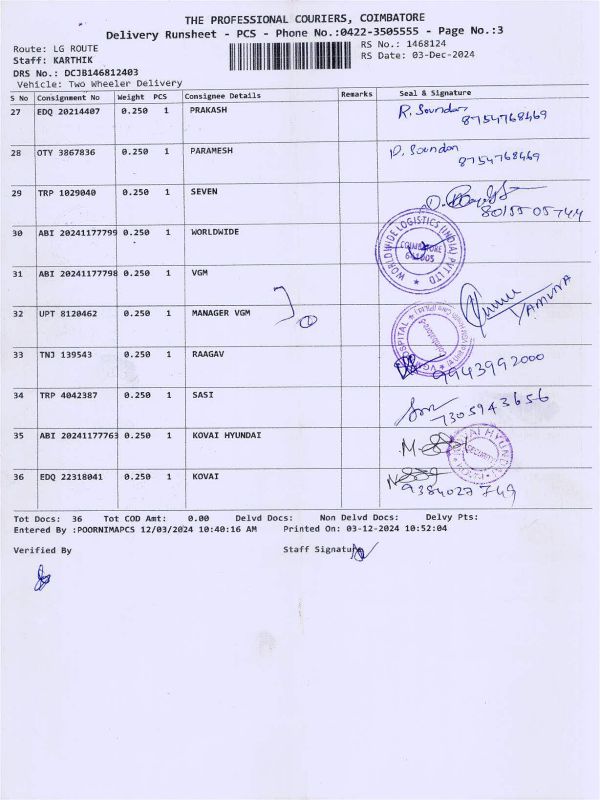 THE PROFESSIONAL COURIERS, COIMBATORE
Delivery Runsheet - PCS - Phone No.:0422-3505555 - Page No.:3
Route: LG ROUTE RS No.: 1468124
Staff: KARTHIK RS Date: 03-Dec-2024
DRS No.: DCJB146812403
Vehicle: Two Wheeler Delivery
S No Consignment No Weight PCS Consignee Details Remarks Seal & Signature
27 EDQ 20214407 0.250 1 PRAKASH R. Soundar
8754768469
28 OTY 3867836 0.250 1 PARAMESH Soundar
8754768469
29 TRP 1029040 0.250 1 SEVEN
8015505744
30 ABI 20241177799 0.250 1 WORLDWIDE WORLDWIDE LOGISTICS (INDIA) PVT LTD
COIMBATORE
31 ABI 20241177798 0.250 1 VGM
32 UPT 8120462 0.250 1 MANAGER VGM YAMUNA
33 TNJ 139543 0.250 1 RAAGAV 9943992000
34 TRP 4042387 0.250 1 SASI
7305943656
35 ABI 20241177763 0.250 1 KOVAI HYUNDAI KOVAI HYUNDAI
SECURITY
36 EDQ 22318041 0.250 1 KOVAI
9384027749
Tot Docs: 36 Tot COD Amt: 0.00 Delvd Docs: Non Delvd Docs: Delvy Pts:
Entered By :POORNIMAPCS 12/03/2024 10:40:16 AM Printed On: 03-12-2024 10:52:04
Verified By Staff Signature